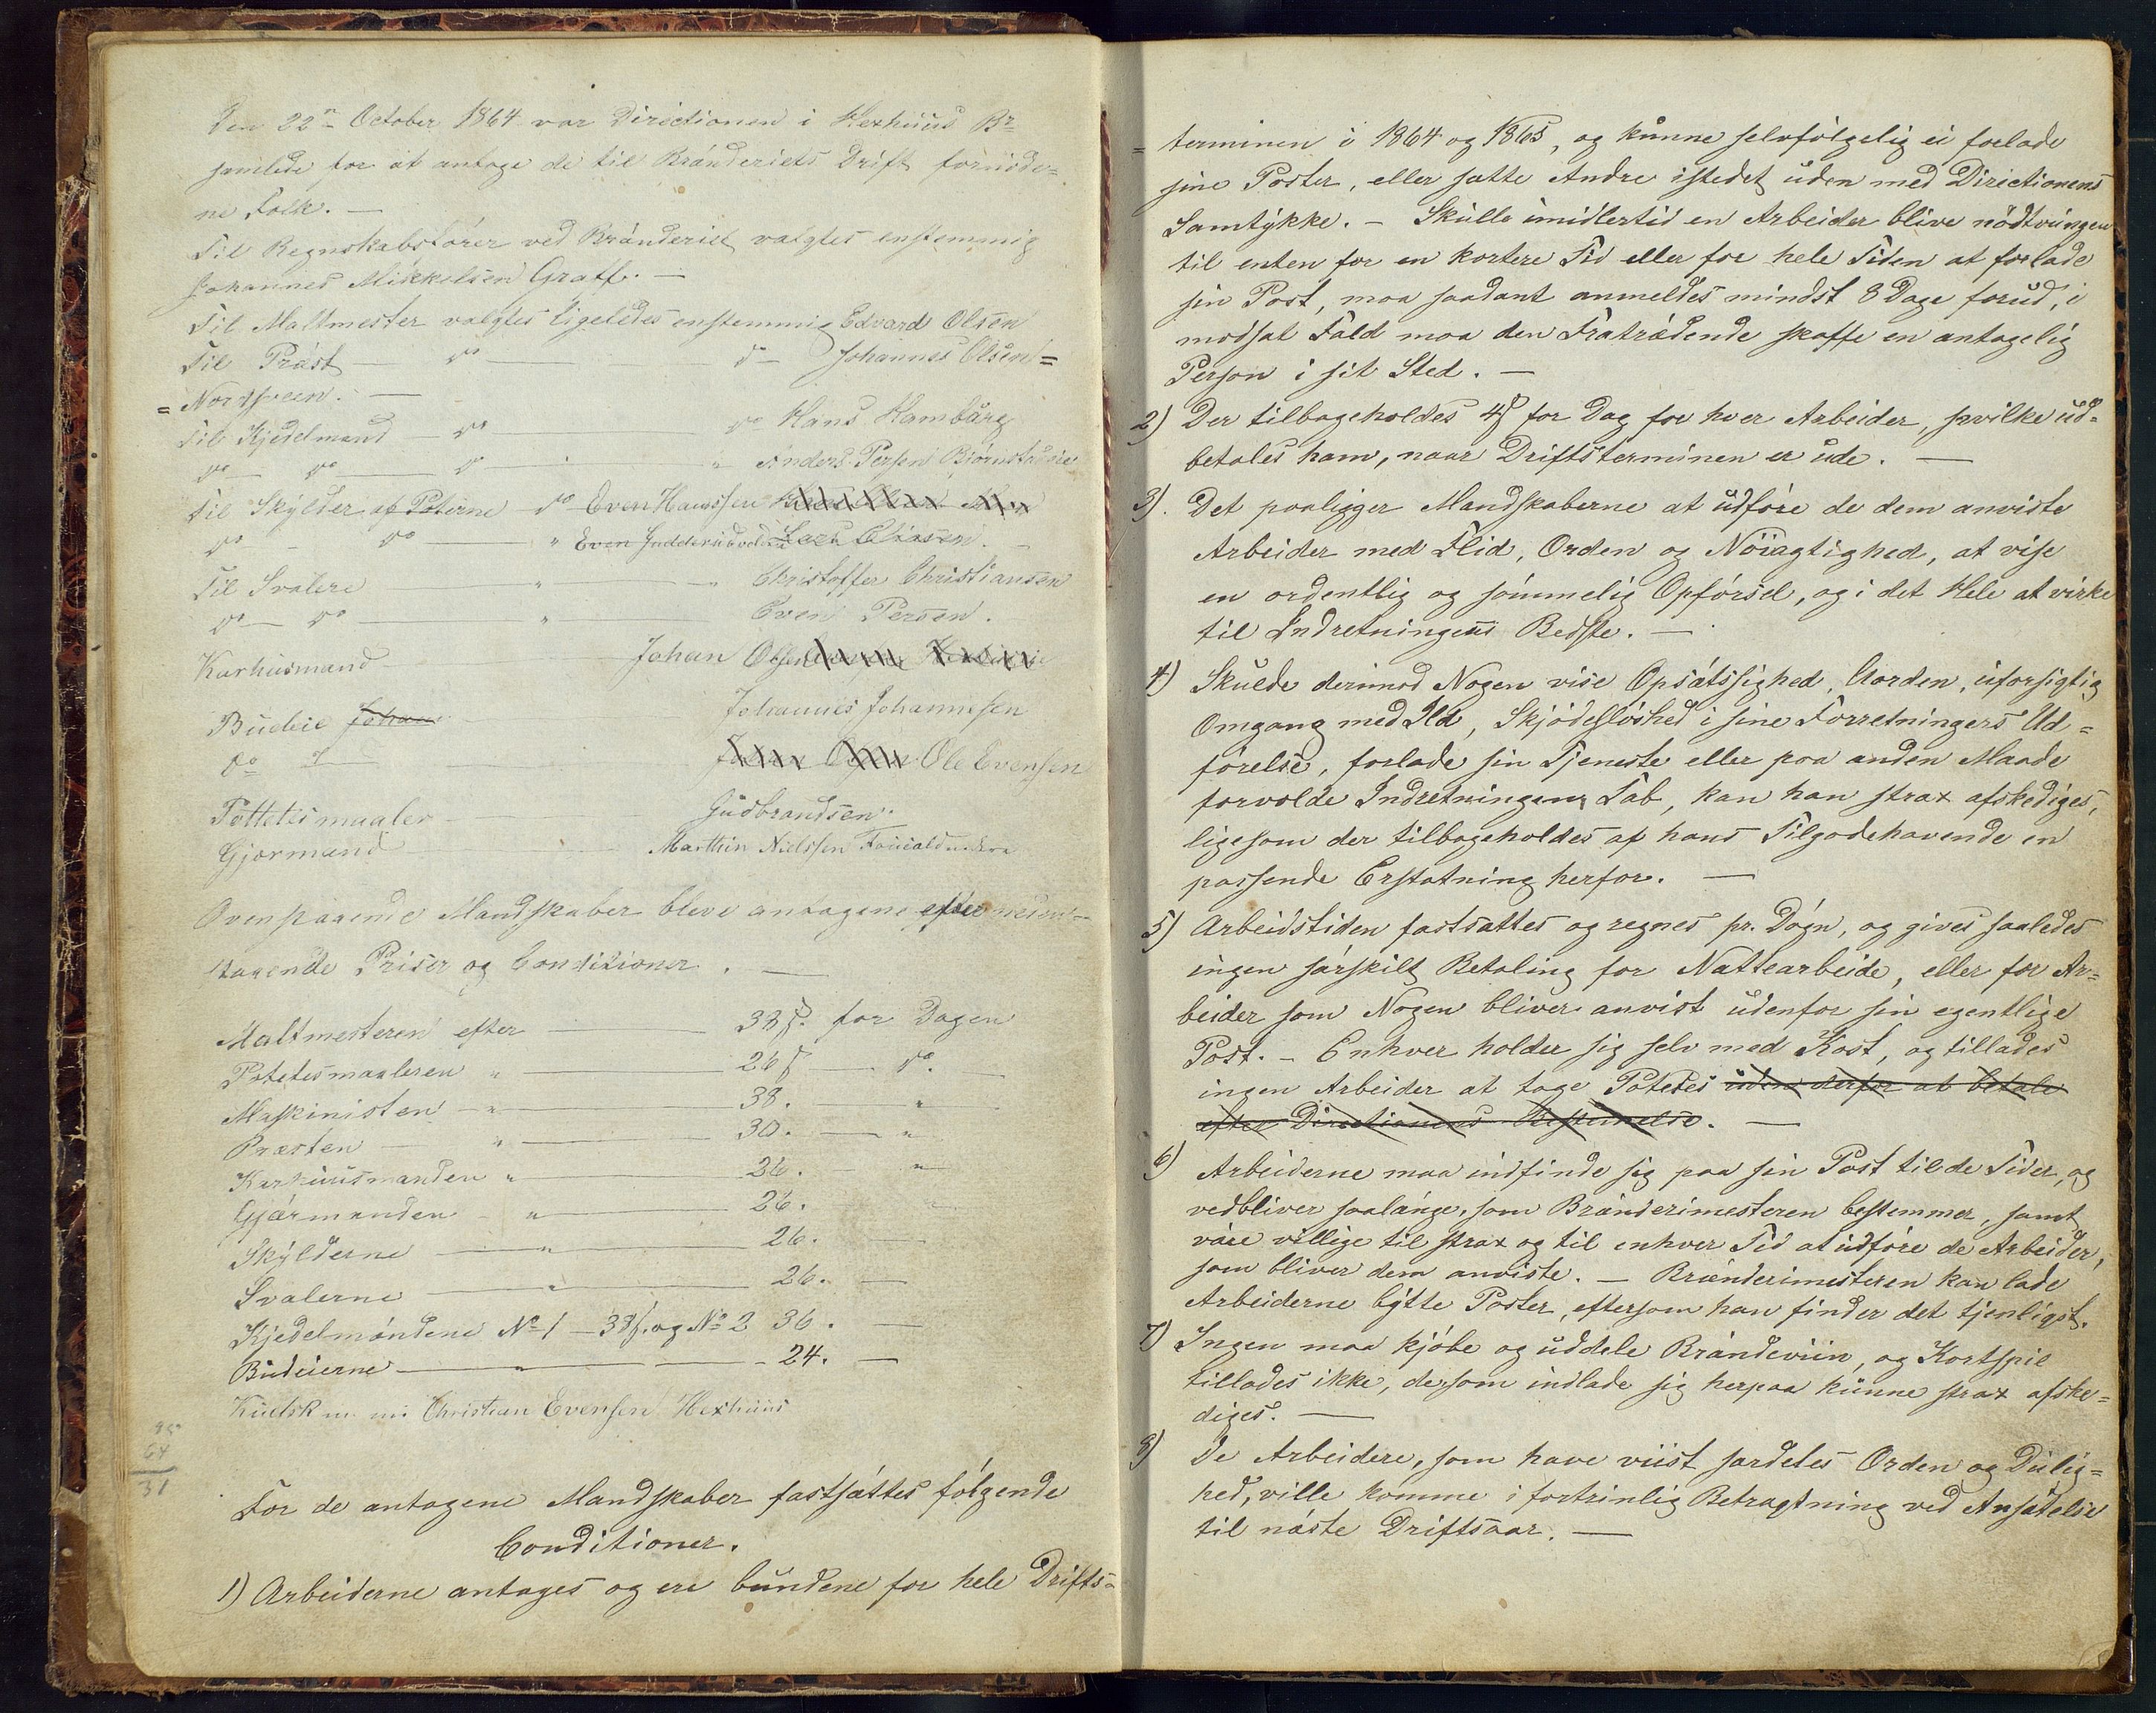 Den 22n October 1864 var Directionen i Hexhuus Br
samlede for at antage de til Bränderiets Drift fornöde=
ne Folk. —
Til Regnskabsförer ved Bränderiet valgtes enstemmig
Johannes Mikkelsen Graff. —
Til Maltmester valgtes ligeledes enstemmig Edvard Olsen
Til Präst — do — do — Johannes Olsen =
= Nordsveen. —
Til Kjedelmand — do — do Hans Hamburg
do — do — do " Anders Persen Björnstadeie
Til Skylder af Poterne do Even Hanssen
do — do — " Even Lars Olassen.
Til Svalere — " — " Christoffer Christiansen
do — do — " Even Persen.
Karhusmand — Johan Olsen
Budeie Johan Johannes Johannesen
do Ole Evensen
Pottetesmaaler — Gudbrandsen.
Gjærmand — Marthin Nielssen
Ovenstaaende Mandskaber bleve antagene efter neden=
staaende Priser og Conditioner. —
Maltmesteren efter — 38 ſ. for Dagen
Potetesmaaleren " — 26 ſ — do.
Maskinisten — " — 38. — "
Præsten — " — 30. — "
Karhuusmanden " — 26. "
Gjærmanden — " — 26. "
Skylderne — " — 26. —
Svalerne — " — 26. —
Kjedelmändene No 1 — 38 ſ. og No 2 36. —
Budeierne — " — 24. —
Kudsk Christian Evensen Hexhuus
95
64
31
For de antagene Mandskaber fastsättes fölgende
Conditioner.
1) Arbeiderne antages og ere bundene for hele Drifts=
= terminen i 1864 og 1865, og kunne selvfölgelig ei forlade
sine Poster, eller satte Andre istedet uden med Directionens
Samtykke. — Skulle imidlertid en Arbeider blive nödtvungen
til enten for en kortere Tid eller for hele Tiden at forlade
sin Post, maa saadant anmeldes mindst 8 Dage forud, i
modsat Fald maa den Fraträdende skaffe en antagelig
Person i sit Sted. —
2) Der tilbageholdes 4 ſ for Dag for hver Arbeider, hvilke ud=
betales ham, naar Driftsterminen er ude. —
3). Det paaligger Mandskaberne at udföre de dem anviste
Arbeider med Flid, Orden og Nöiagtighed, at vise
en ordentlig og sömmelig Opförsel, og i det Hele at virke
til Indretningens Bedste. —
4) Skulde derimod Nogen vise Opsätssighed, Uorden, uforsigtig
Omgang med Ild, Skjödeslöshed i sine Forretningers Ud=
förelse, forlade sin Tjeneste eller paa anden Maade
forvolde Indretningen Tab, kan han strax afskediges,
ligesom der tilbageholdes af hans Tilgodehavende en
passende Erstatning herfor. —
5) Arbeidstiden fastsattes og regnes pr. Dögn, og gives saaledes
ingen särskilt Betaling for Nattearbeide, eller for Ar=
beider som Nogen bliver anvist udenfor sin egentlige
Post. — Enhver holder sig selv med Kost, og tillades
ingen Arbeider at tage Potetes uden derfor at betale
efter Directionens Bestemelse. —
6) Arbeiderne maa indfinde sig paa sin Post til de Tider, og
vedbliver saalänge, som Bränderimesteren bestemmer, samt
väre villige til strax og til enhver Tid at udföre de Arbeider,
som bliver dem anviste. — Brænderimesteren kan lade
Arbeiderne bytte Poster, eftersom han finder det tjenligst.
7) Ingen maa kjöbe og uddele Brändeviin, og Kortspil
tillades ikke, de, som indlade sig herpaa kunne strax afske=
diges. —
8) De Arbeidere, som have viist særdeles Orden og Dulig=
hed, ville komme i fortrinlig Betragtning ved Ansätelse
til näste Driftsaar. —